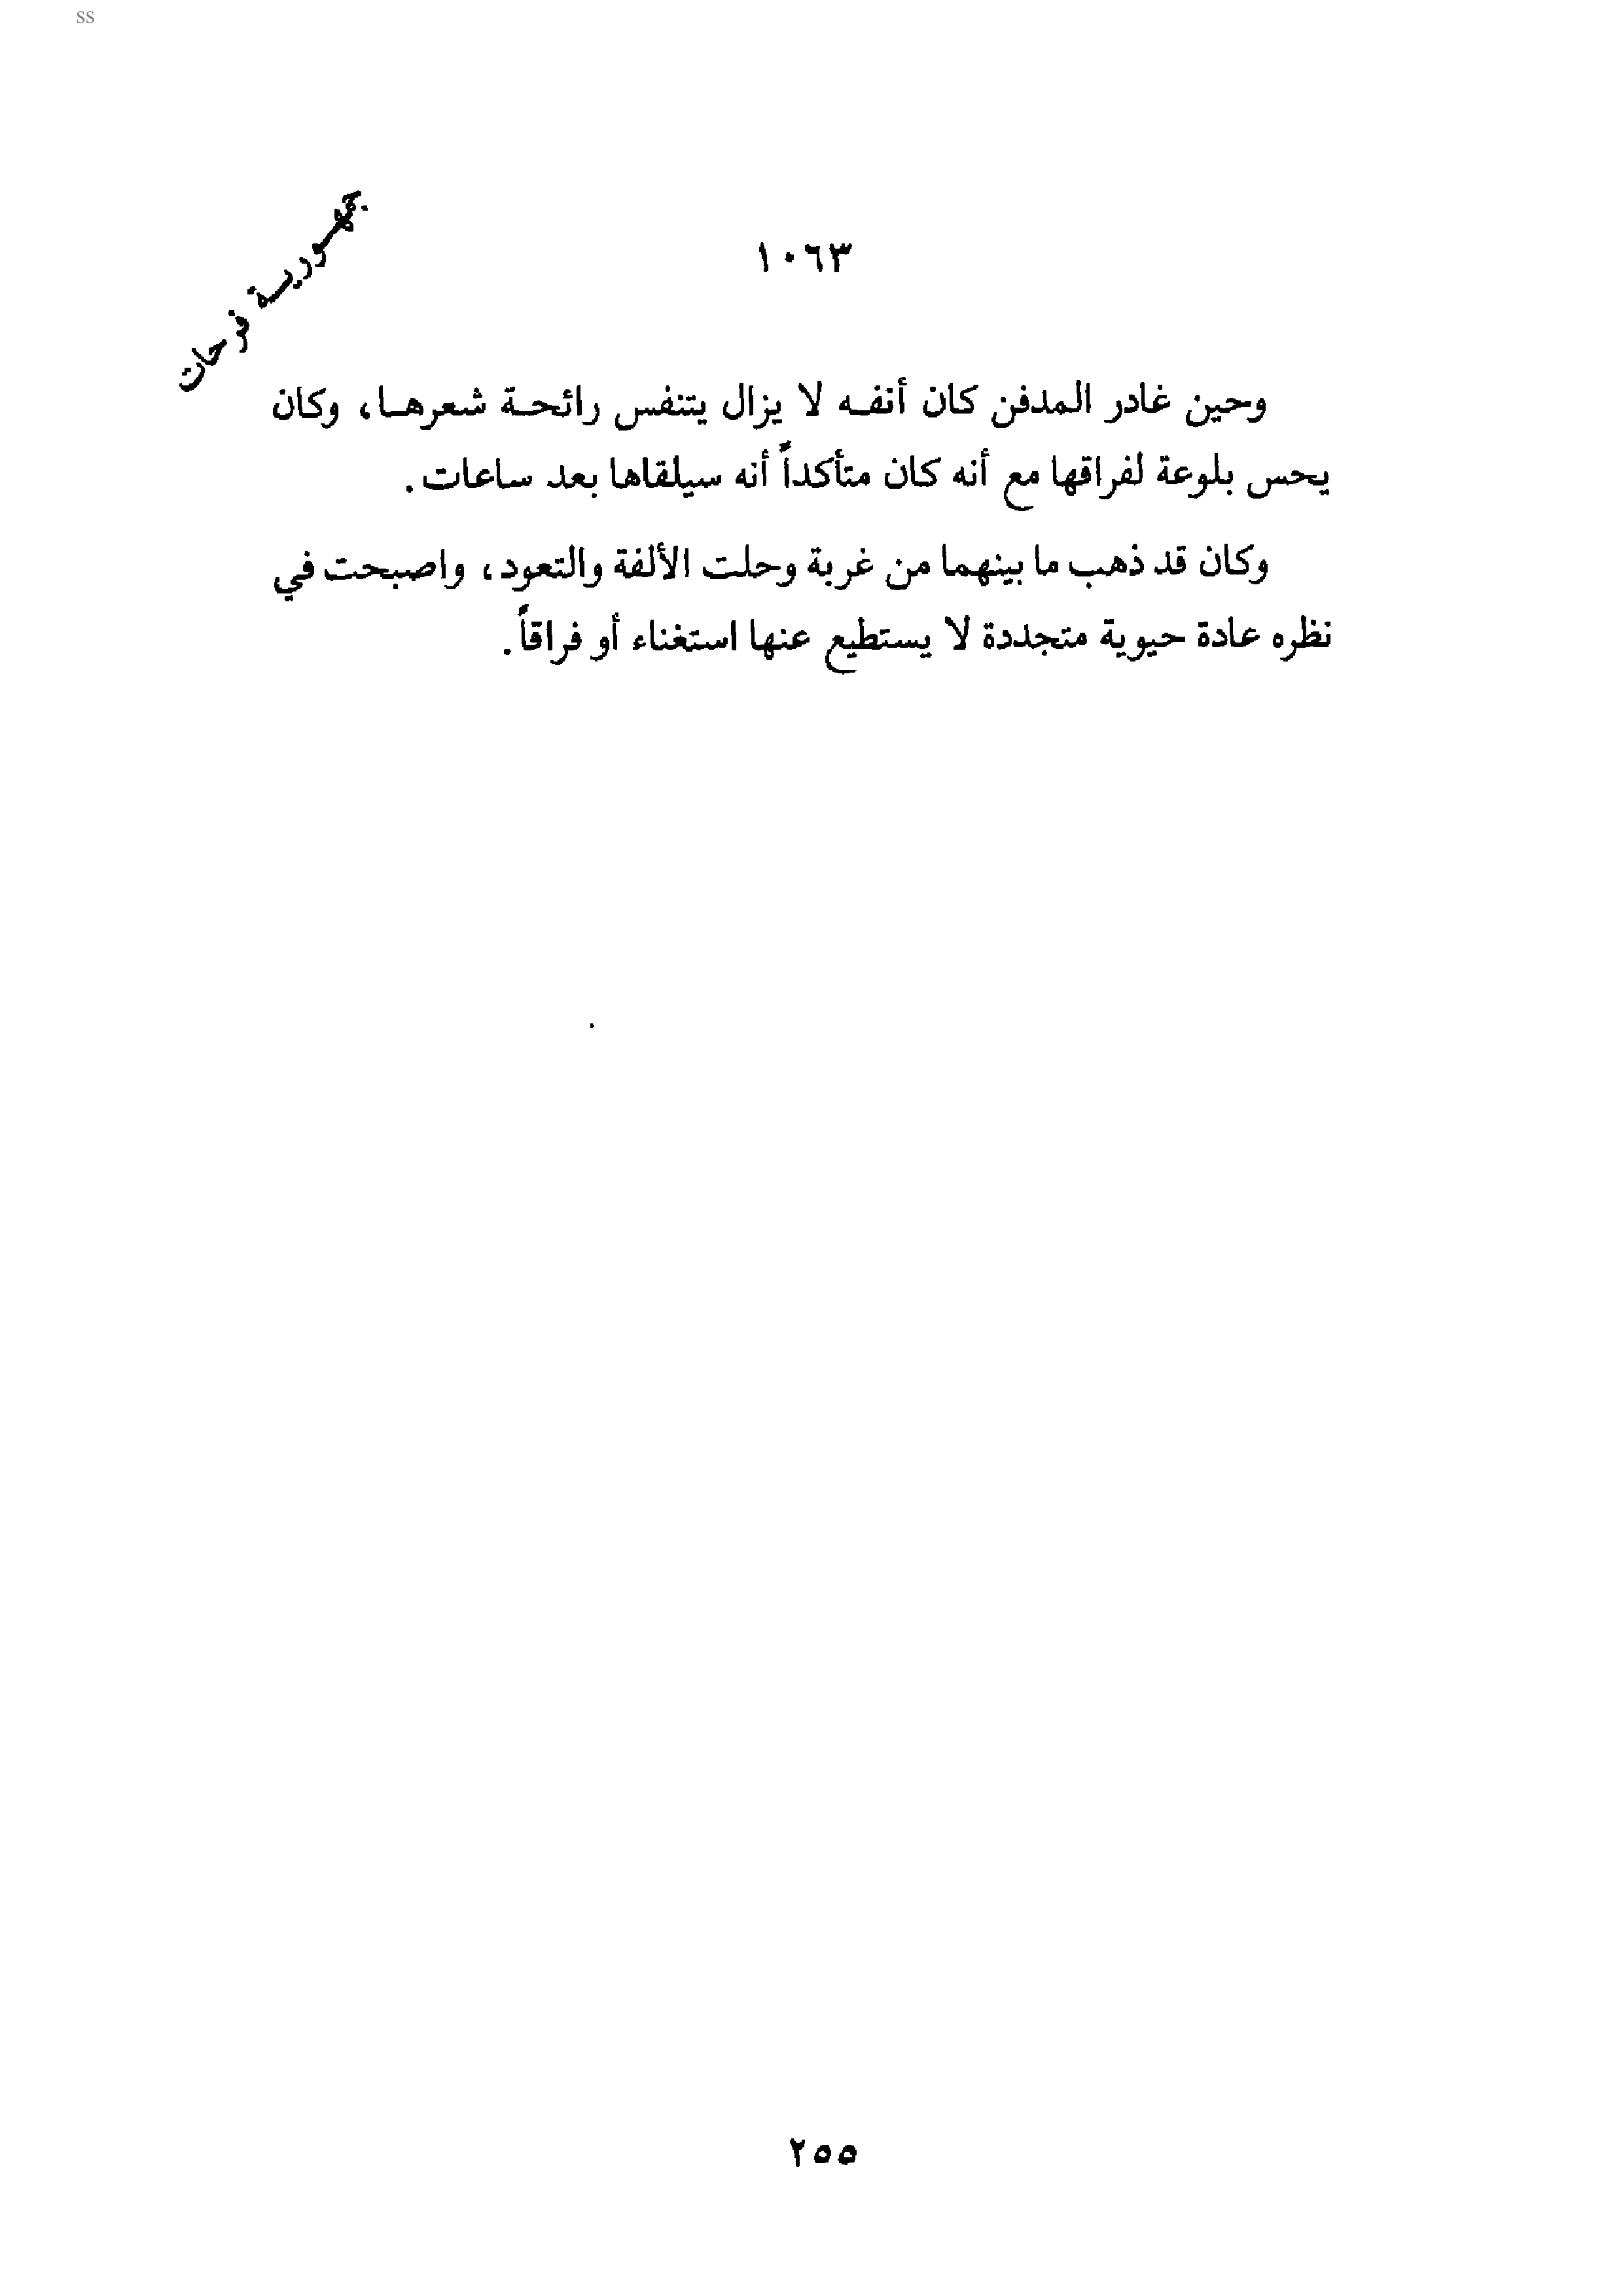 ss
جمهورية فرحات
١٠٦٣
وحين غادر المدفن كان أنفه لا يزال يتنفس رائحة شعرها، وكان
يحس بلوعة لفراقها مع أنه كان متأكداً أنه سيلقاها بعد ساعات.
وكان قد ذهب ما بينهما من غربة وحلت الألفة والتعود، واصبحت في
نظره عادة حيوية متجددة لا يستطيع عنها استغناء أو فراقاً.
٢٥٥